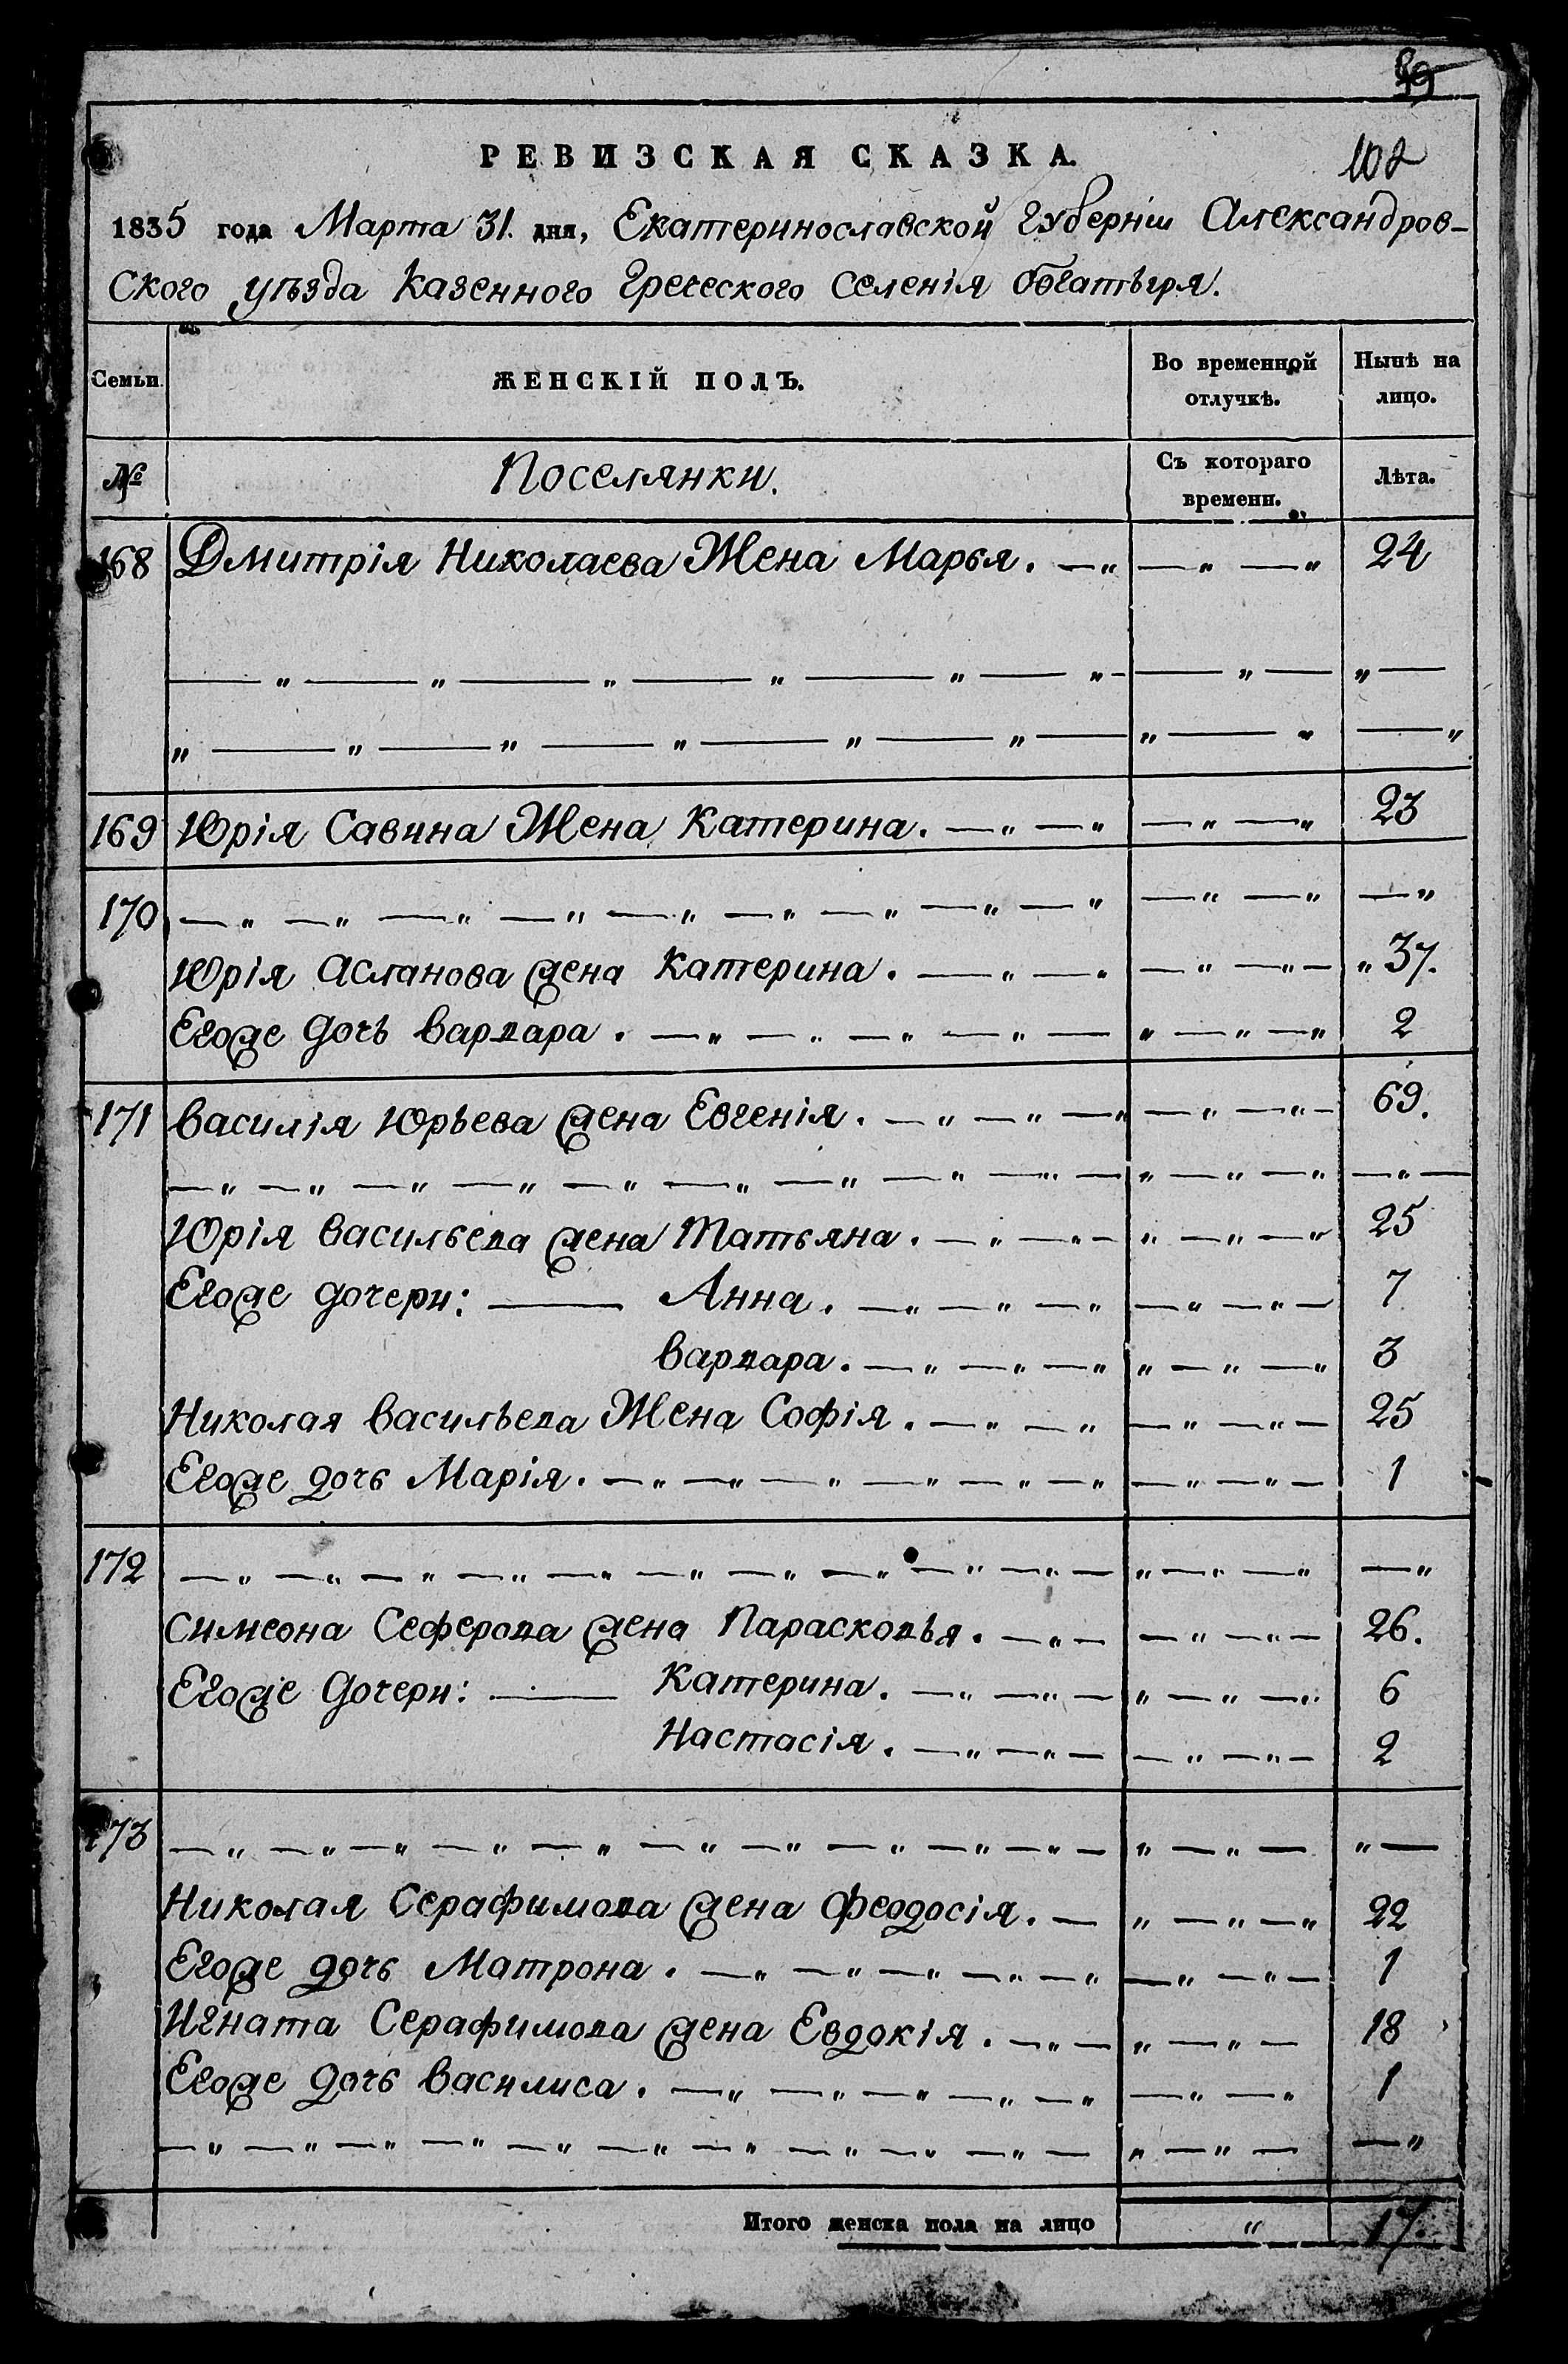 РЕВИЗСКАЯ СКАЗКА.
102
1835 года Марта 31. дня, Екатеринославской Губерніи Александров-
ского уѣзда Казенного Греческого Селенія Богатыря.
Семьи.
ЖЕНСКІЙ ПОЛЪ.
Во временной отлучкѣ.
Нынѣ на лицо.
№
Поселянки.
Съ котораго времени.
Лѣта.
168 Дмитрія Николаева Жена Марья. 24
169 Юрія Савина Жена Катерина. 23
170
Юрія Асланова жена Катерина. 37.
Егоже дочь Варвара. 2
171 Василія Юрьева жена Евгенія. 69.
Юрія Васильева жена Татьяна. 25
Егоже дочери: Анна. 7
Варвара. 3
Николая Васильева Жена Софія. 25
Егоже дочь Марія. 1
172
Симеона Сеферова жена Парасковья. 26.
Егоже дочери: Катерина. 6
Настасія. 2
173
Николая Серафимова жена Феодосія. 22
Егоже дочь Матрона. 1
Игната Серафимова жена Евдокія. 18
Егоже дочь Василиса. 1
Итого женска пола на лицо " 17.